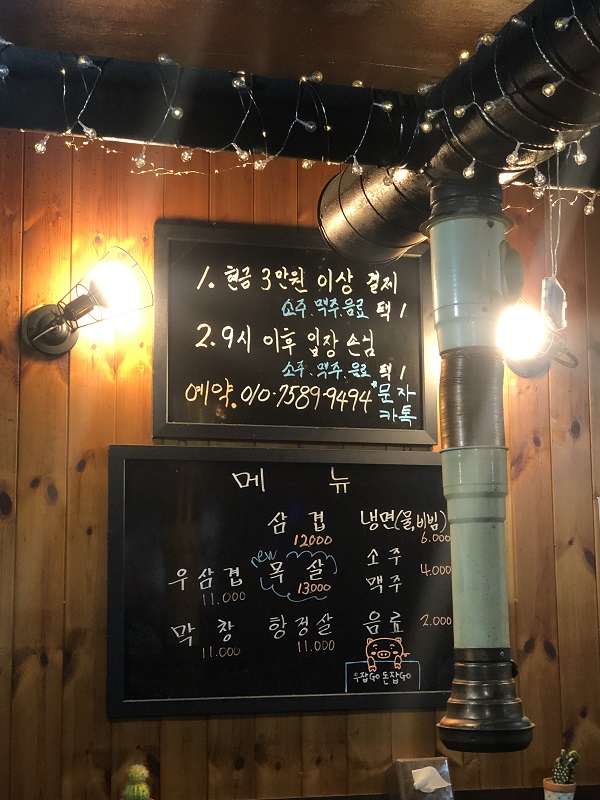 1. 현금 3만원 이상 결제
소주.맥주.음료 택 1
2. 9시 이후 입장 손님
소주.맥주.음료 택 1
예약. 010-7589-9494 *문자
카톡
메 뉴
삼 겹
12000
냉면(물,비빔)
6.000
우삼겹
11.000
new 목 살
13000
소 주
맥 주
4.000
막 창
11.000
항정살
11.000
음료 2.000
우잡GO 돈잡GO